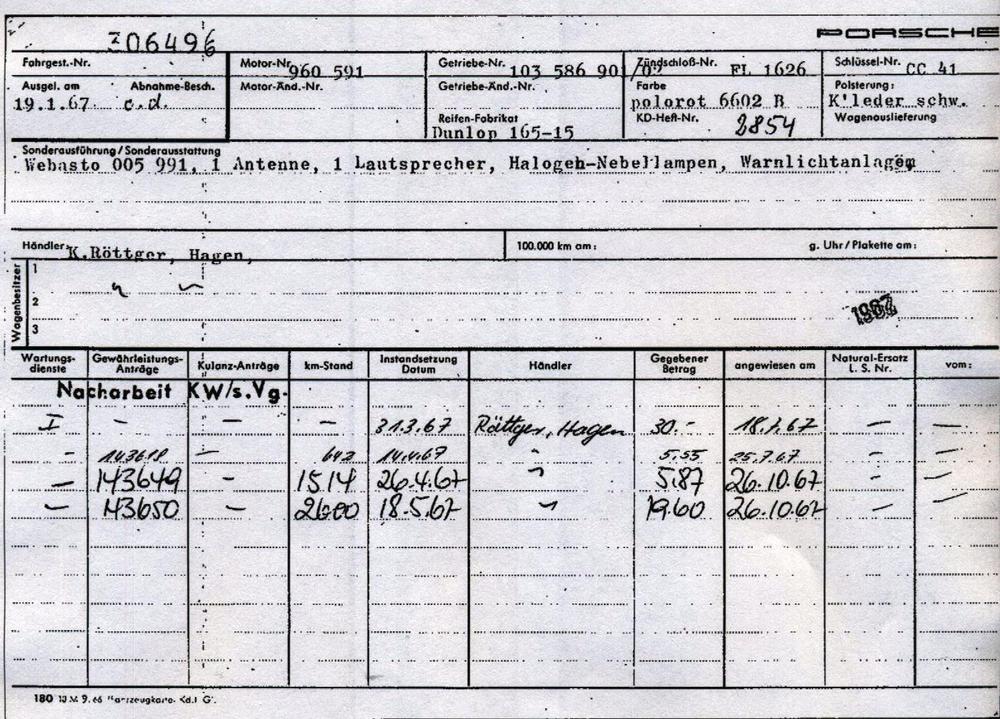 306496
PORSCHE
Fahrgest.-Nr. Motor-Nr. 960 591 Getriebe-Nr. 103 586 901/02 Zündschloß-Nr. FL 1626 Schlüssel-Nr. CC 41
Ausgel. am Abnahme-Besch. Motor-Änd.-Nr. Getriebe-Änd.-Nr. Farbe Polsterung:
19.1.67 c.d. polorot 6602 R K'leder schw.
Reifen-Fabrikat KD-Heft-Nr. 2854 Wagenauslieferung
Dunlop 165-15
Sonderausführung / Sonderausstattung
Webasto 005 991, 1 Antenne, 1 Lautsprecher, Halogen-Nebellampen, Warnlichtanlage
Händler: K.Röttger, Hagen, 100.000 km am: g. Uhr/Plakette am:
Wagenbesitzer
1
2
3
1967
Wartungs-dienste Gewährleistungs-Anträge Kulanz-Anträge km-Stand Instandsetzung Datum Händler Gegebener Betrag angewiesen am Natural-Ersatz L. S. Nr. vom:
Nacharbeit KW/s.Vg.
I - - - 31.3.67 Röttger, Hagen 30.- 18.7.67 - -
- 143618 - 642 14.4.67 " 5.55 25.7.67 - -
- 143649 - 1514 26.4.67 " 5.87 26.10.67 - -
- 143650 - 2600 18.5.67 " 19.60 26.10.67 - -
180 10 M 9.66 Fahrzeugkarte Kd.